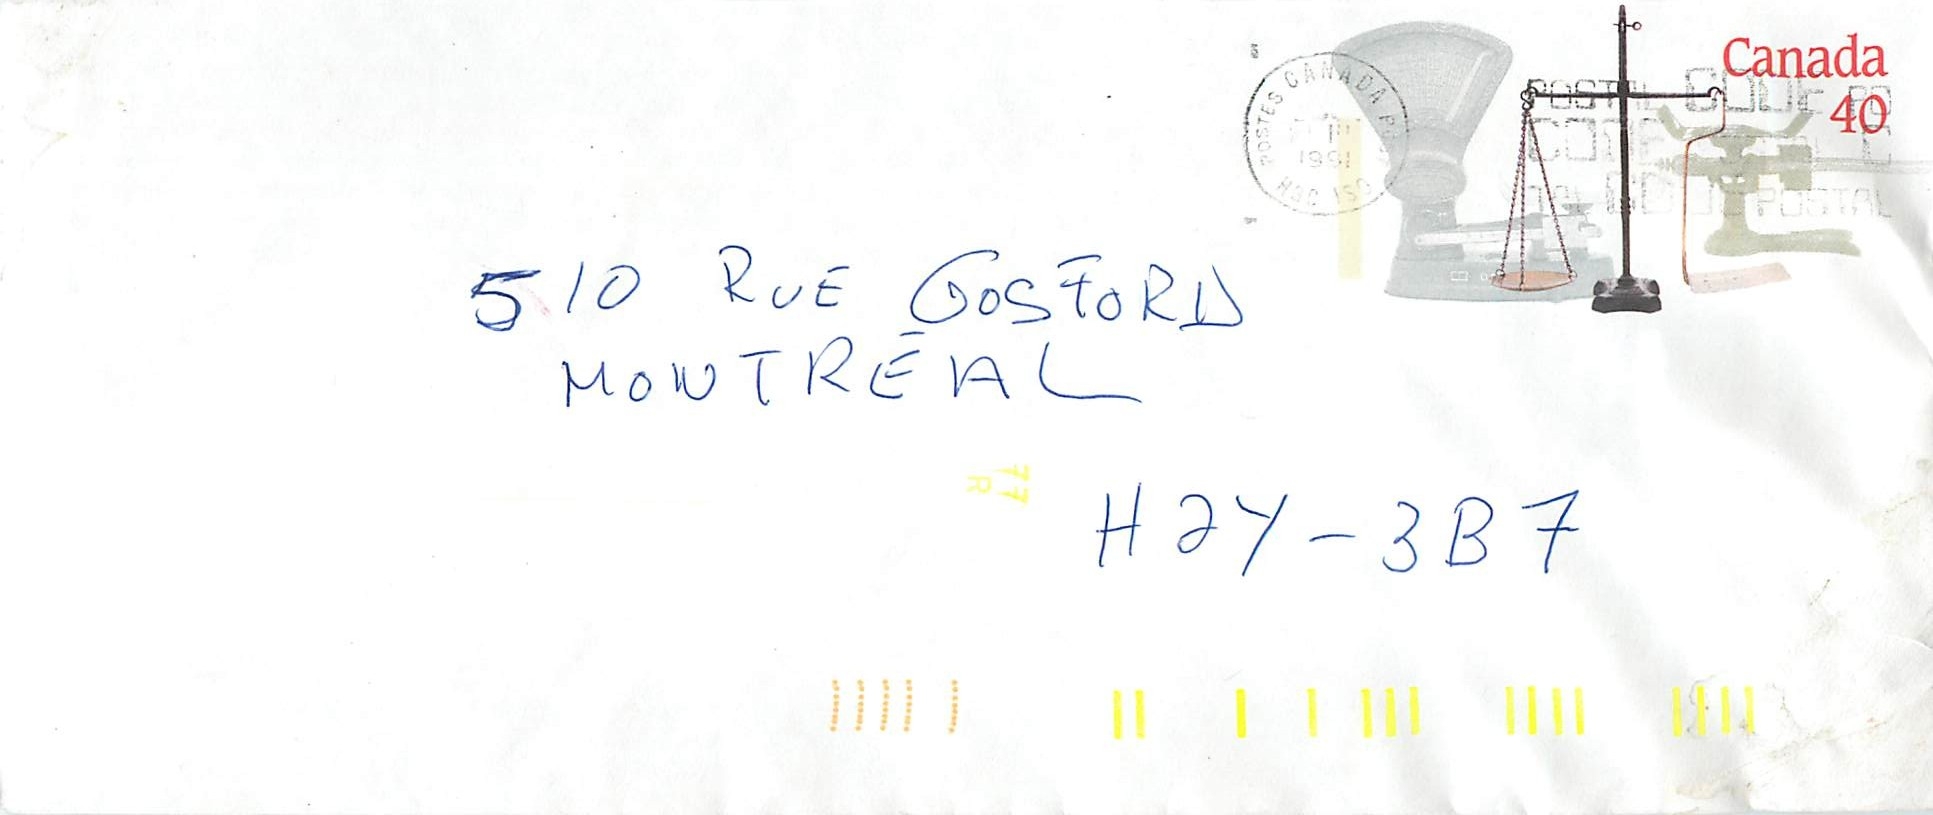 Canada
40
POSTES CANADA
1991
POSTAL CODE
POSTAL
510 RUE GOSFORD
MONTRÉAL
77
R
H2Y-3B7